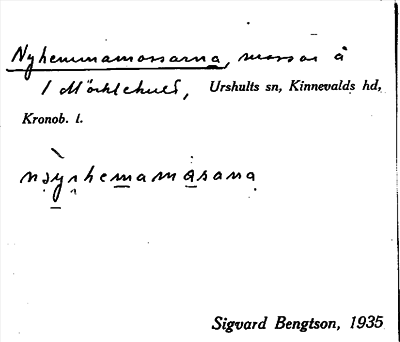 Nyhemmamossarna, mossar å
1 Mörhlehult, Urshults sn, Kinnevalds hd,
Kronob. l.
nəynhemamåsana
Sigvard Bengtson, 1935